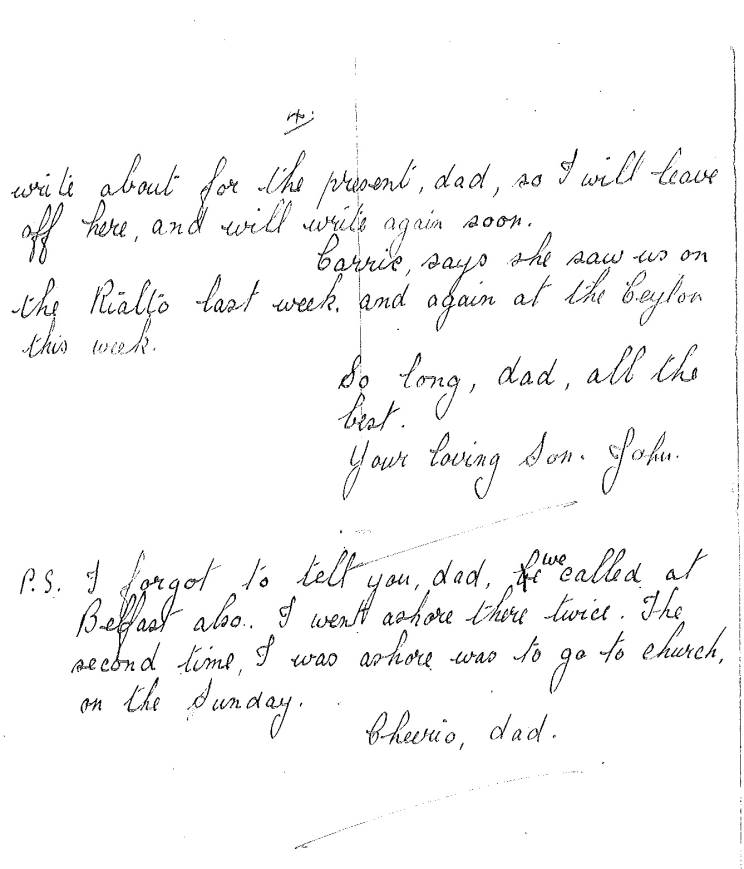 4.
write about for the present, dad, so I will leave
off here, and will write again soon.
Carrie, says she saw us on
the Rialto last week. and again at the Ceylon
this week.
So long, dad, all the
best.
Your loving Son. John.
P.S. I forgot to tell you, dad, we called at
Belfast also.. I went ashore there twice. The
second time, I was ashore was to go to church,
on the Sunday.
Cheerio, dad.